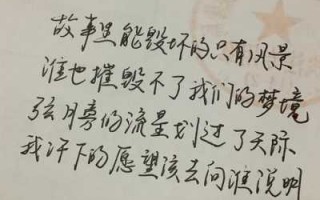 故事里能毁坏的只有风景
谁也摧毁不了我们的梦境
弦月旁的流星划过了天际
我许下的愿望该去向谁说明